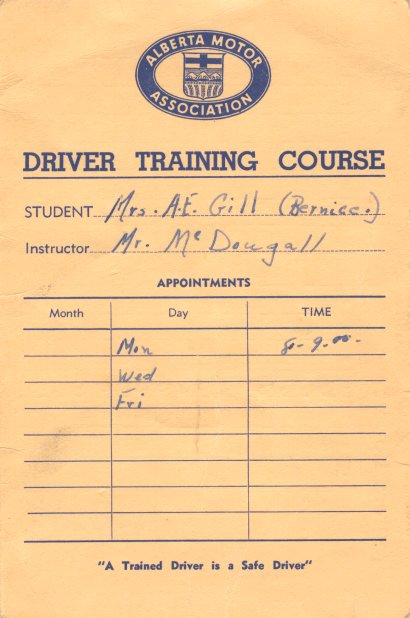 ALBERTA MOTOR
ASSOCIATION
DRIVER TRAINING COURSE
STUDENT Mrs. A.E. Gill (Bernice.)
Instructor Mr. McDougall
APPOINTMENTS
Month Day TIME
Mon 8-9.00-
Wed
Fri
"A Trained Driver is a Safe Driver"